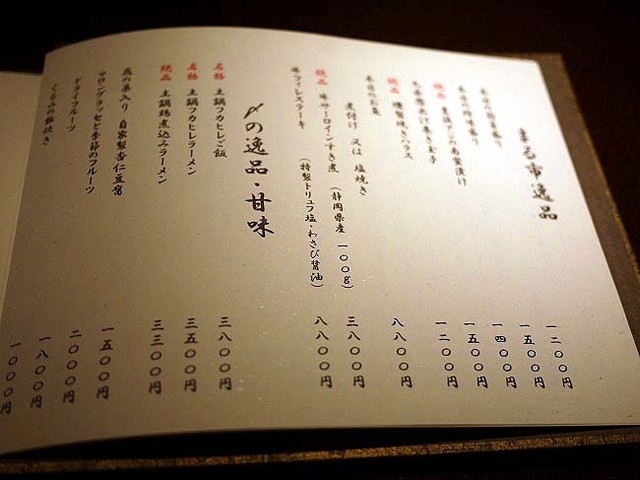 逸品
本日の
本日の
名物
絶品 燻製焼きハラス
本日のお魚
煮付け 又は 塩焼き
絶品 サーロインすき煮 (静岡県産 一〇〇g)
フィレステーキ (特製トリュフ塩・わさび醤油)
一二〇〇円
一五〇〇円
一四〇〇円
一五〇〇円
一二〇〇円
八八〇円
三八〇〇円
八八〇〇円
〆の逸品・甘味
名物 土鍋フカヒレご飯 三八〇〇円
名物 土鍋フカヒレラーメン 三五〇〇円
絶品 土鍋鶏煮込みラーメン 三三〇〇円
燕の巣入り 自家製杏仁豆腐 一五〇〇円
マロングラッセと季節のフルーツ 二〇〇〇円
ドライフルーツ 一八〇〇円
くるみの飴炊き 一〇〇〇円